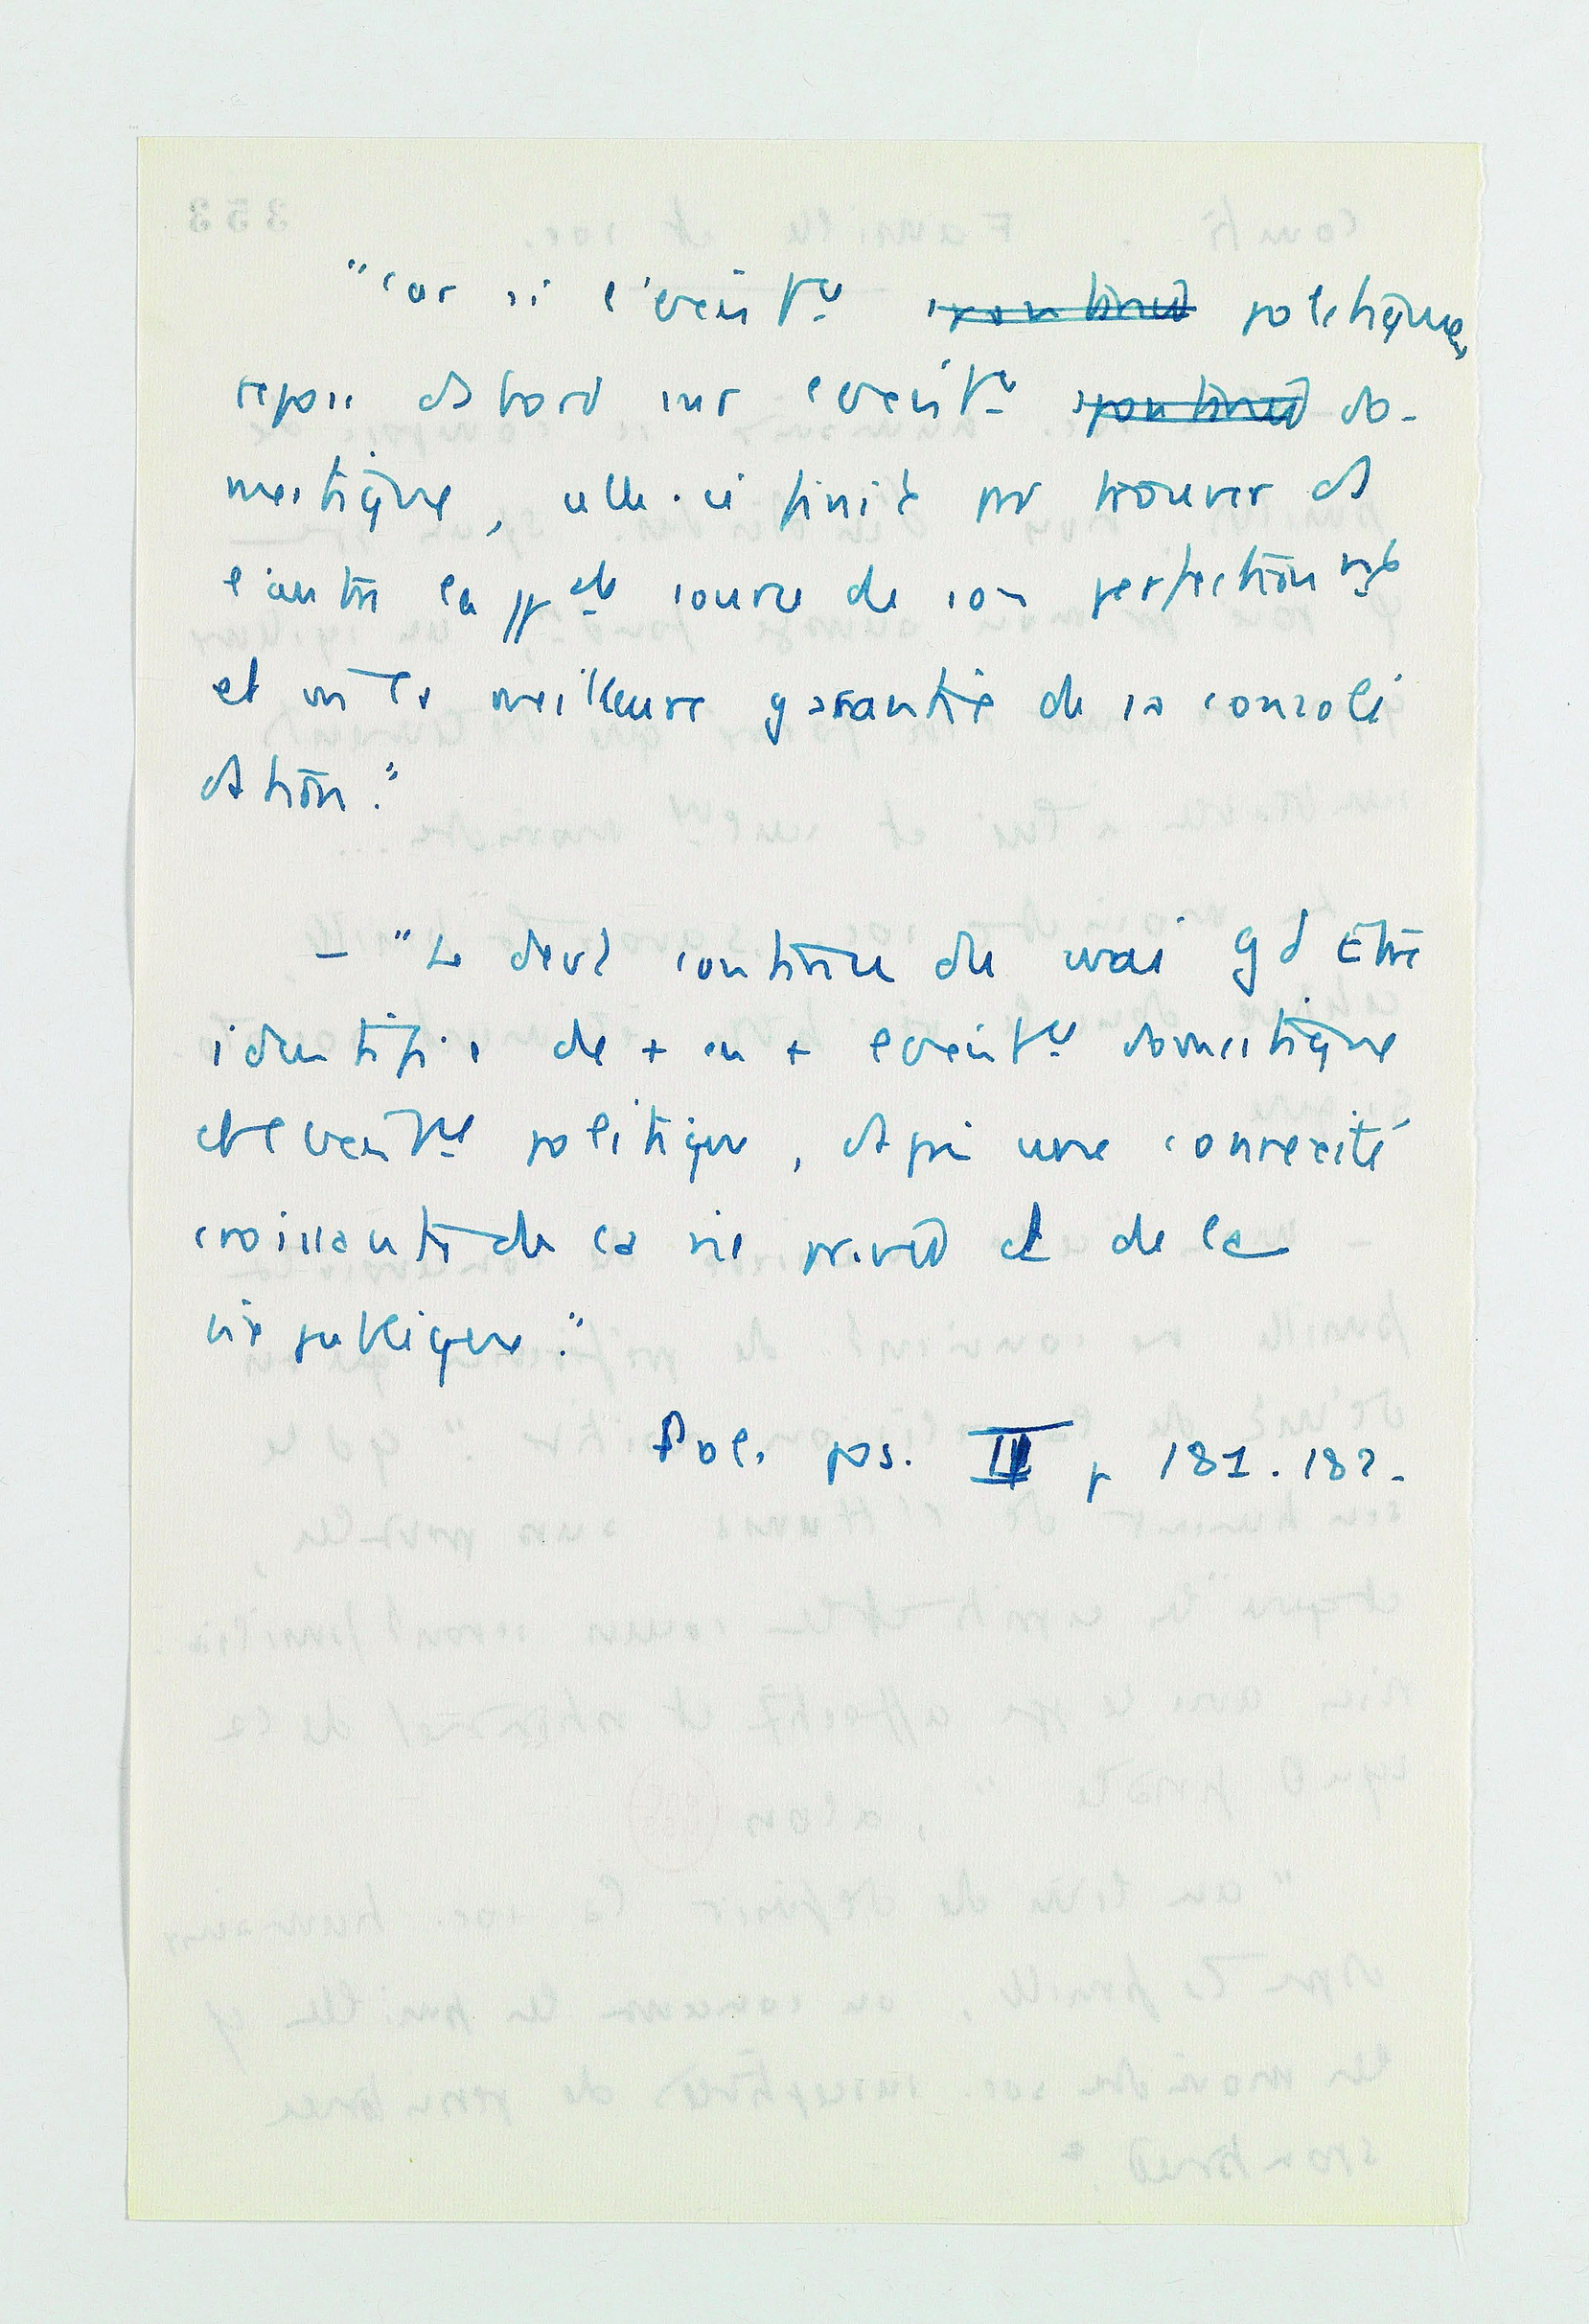 "car si l'exist^ce spontanée politique,
repose d'abord sur l'exist^ce spontanée do-
mestique, celle-ci finit par trouver ds
l'autre la ppale source de son perfectionnt
et m la meilleure garantie de sa consoli
dation."
— "Le devt continu du vrai Gd Etre
identifie de + en + l'exist^ce domestique
et l'exist^ce politique, d'après une connexité
croissante de la vie privée et de la
vie publique."
Pol. pos. III p 181.182.